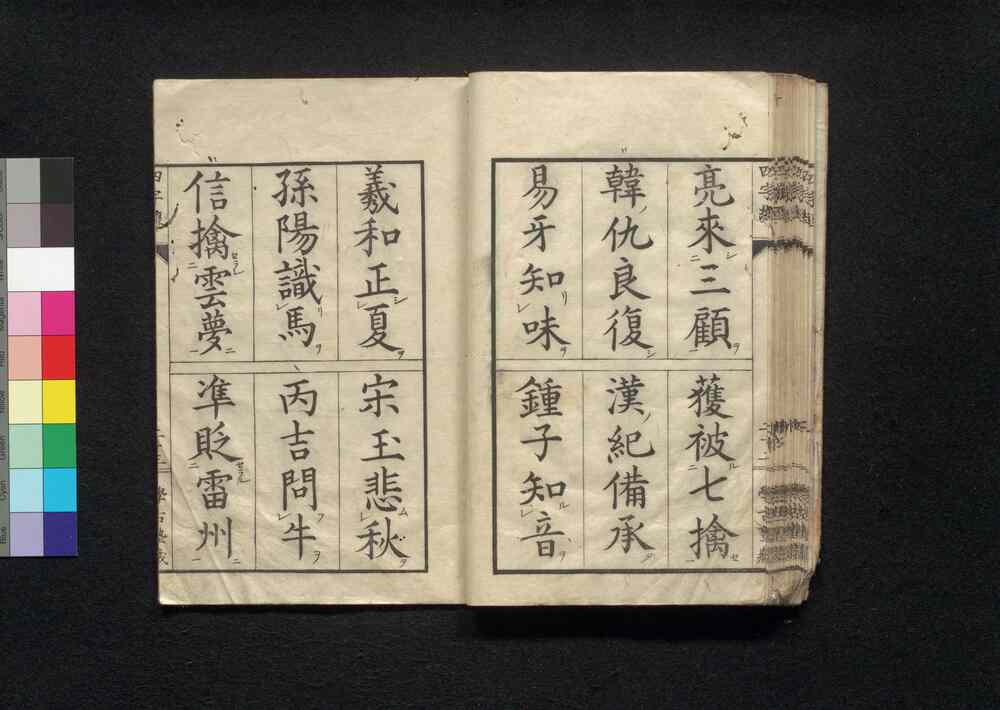 亮來三顧
獲被七擒
韓仇良復
漢紀備承
易牙知味
鍾子知音
羲和正夏
宋玉悲秋
孫陽識馬
丙吉問牛
信擒雲夢
凖貶雷州